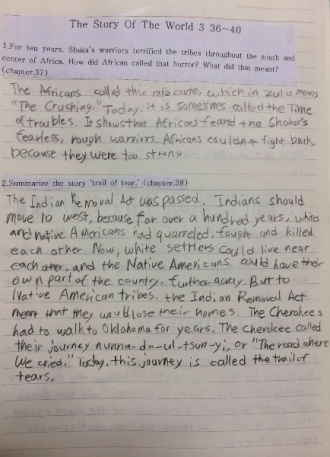 The Story Of The World 3 36~40
1.For ten years, Shaka's warriors terrified the tribes throughout the south and
center of Africa. How did African called that horror? What did that meant?
(chapter.37)
The Africans called this mfecane, which in zulu means
"The Crushing." Today, it is sometimes called the Time
of troubles. It shows that Africans feared the Shaka's
fearless, rough warriors. Africans couldn't fight back,
because they were too strong
2.Summarize the story 'trail of tear.' (chapter.38)
The Indian Removal Act was passed. Indians should
move to west, because for over a hundred years, whites
and native Americans had quarreled, fought and killed
each other. Now, white settlers could live near
each other, and the Native Americans could have their
own part of the country, further away. But to
Native American tribes, the Indian Removal Act
meant that they would lose their homes. The Cherokees
had to walk to Oklahoma for years. The Cherokee called
their journey nunna-da-ul-tsun-yi, or "The road where
We cried." Today, this journey is called the trail of
tears.